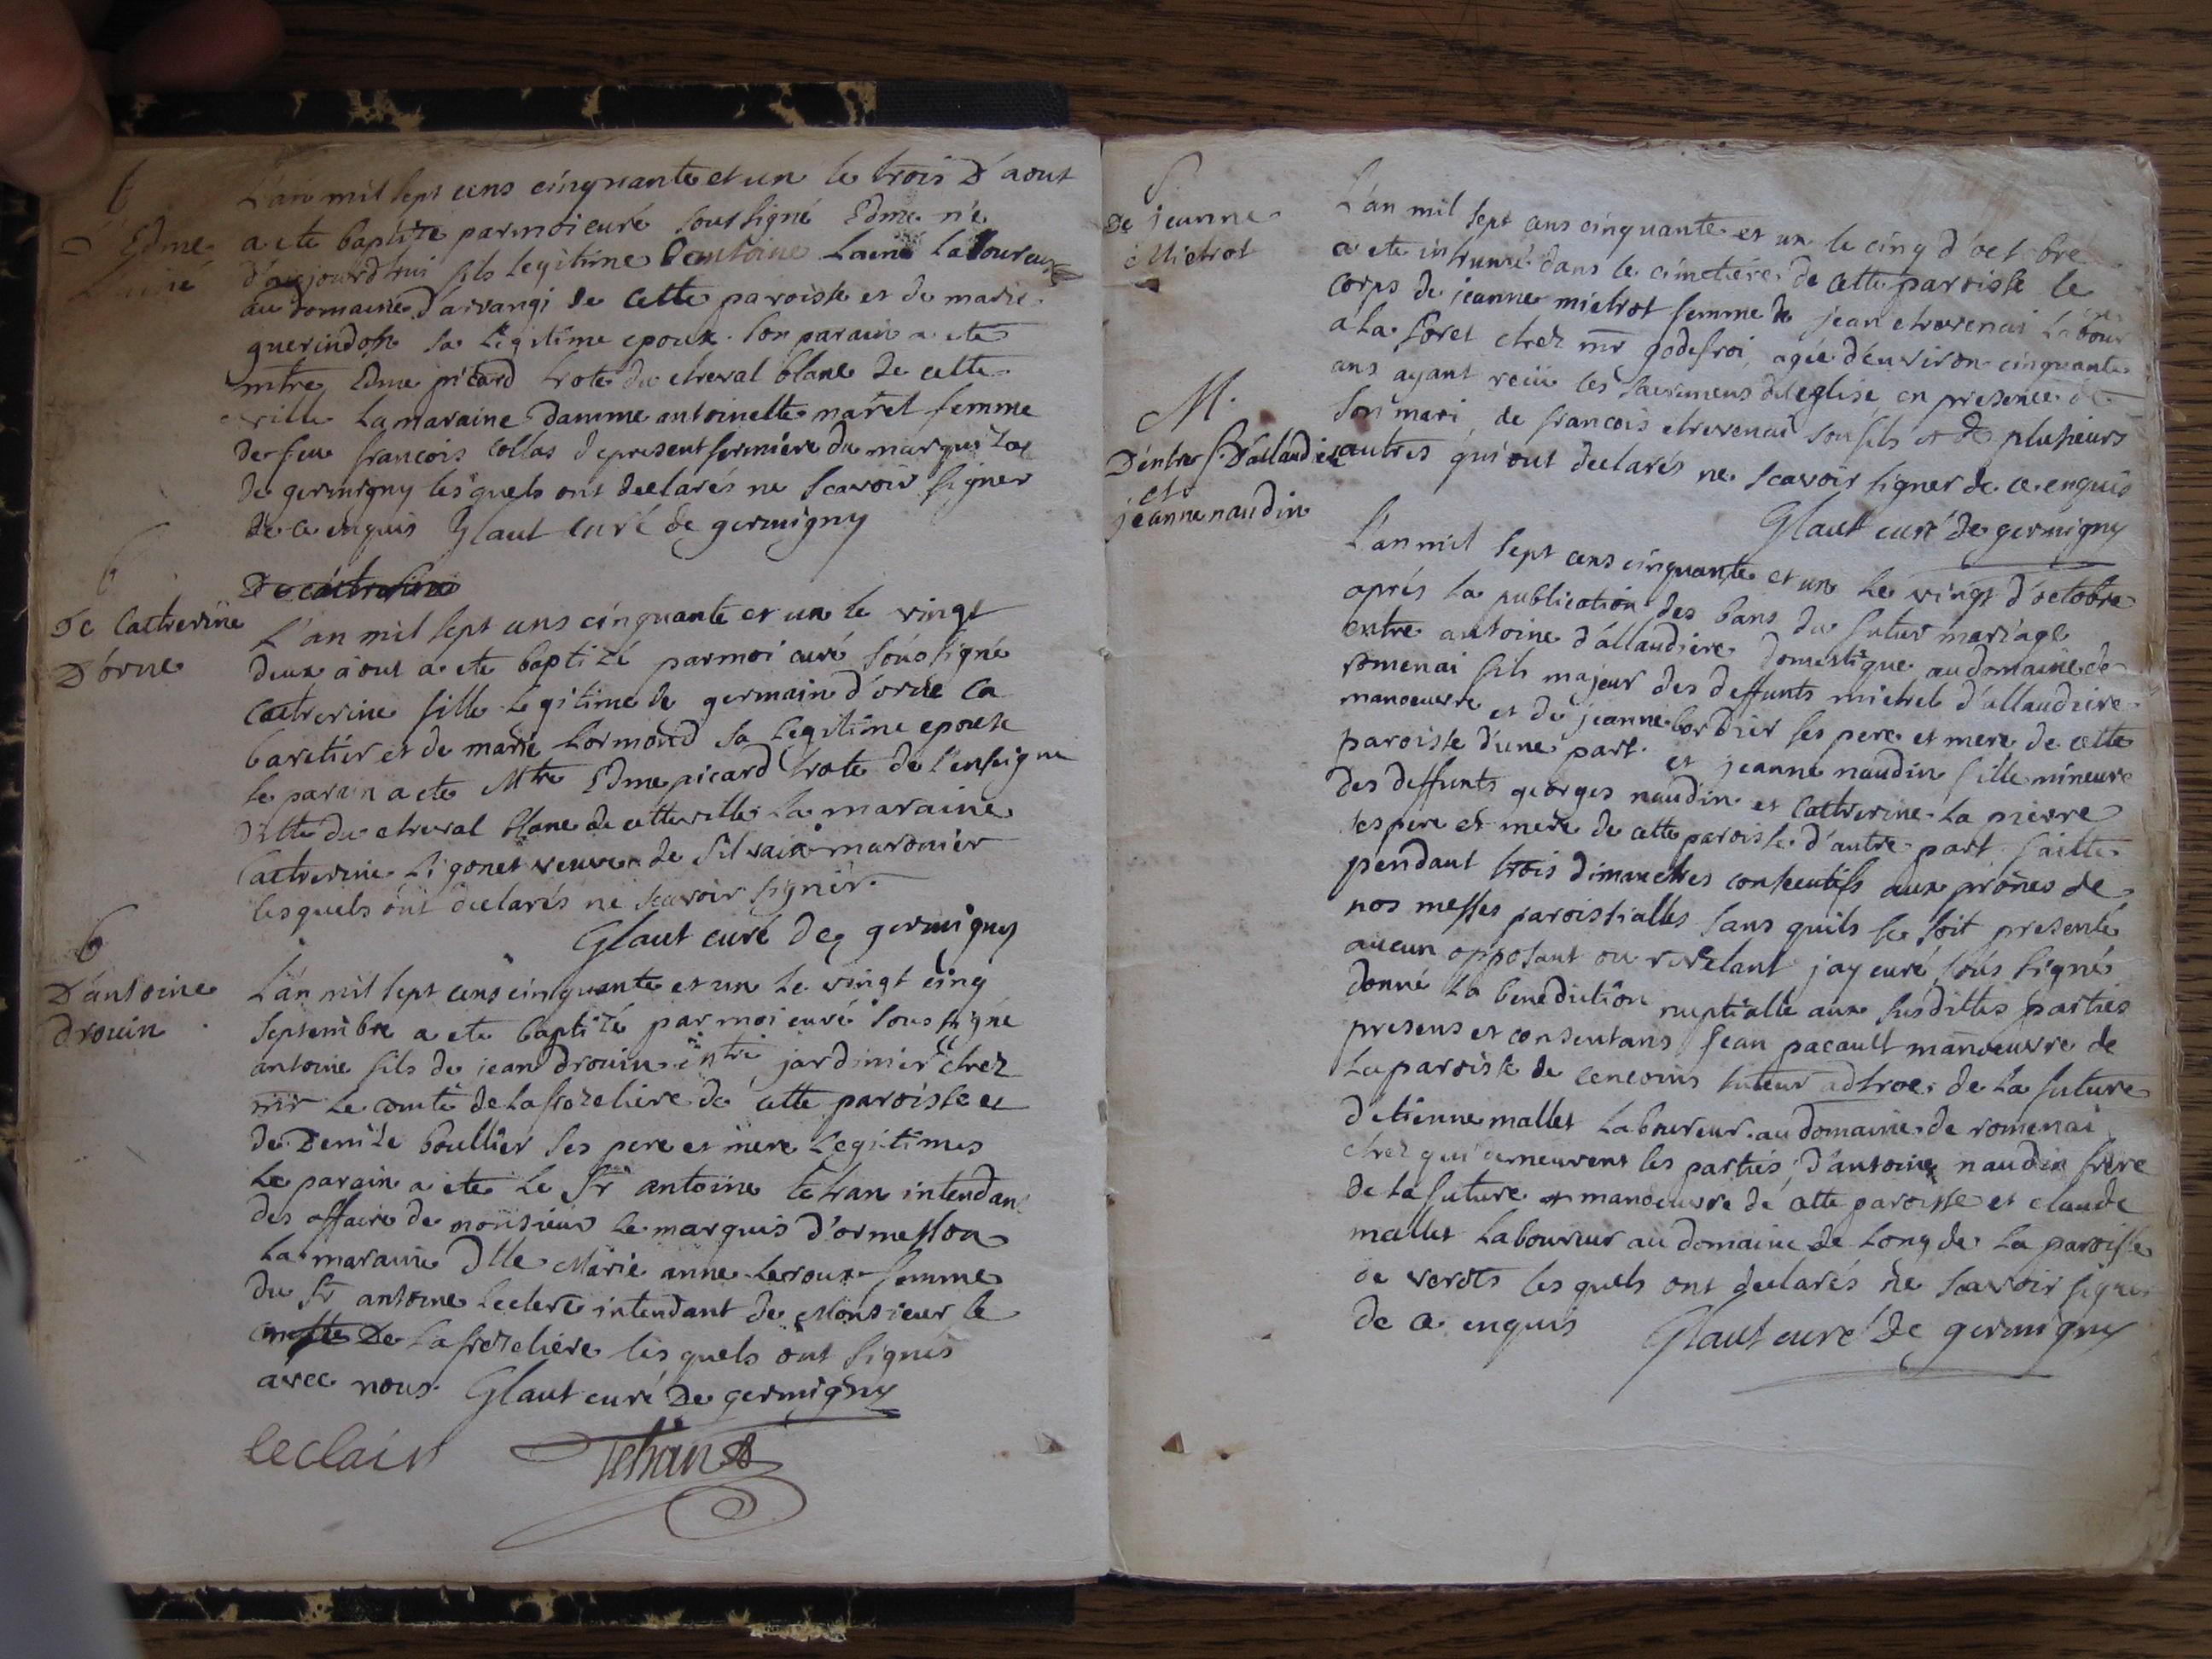 b
D'Edme
Lainé
L'an mil sept cens cinquante et un le trois D'aout
a ete baptizé par moi curé soussigné Edme né
d'aujourdhui fils legitime D'antoine Lainé Laboureur
au domaine d'arvangi de cette paroisse et de marie
guerindon sa legitime epouse son parain a ete
mtre Edme picard hote du cheval blanc de cette
ville La maraine Damme antoinette naret femme
de feu francois collas de present fermiere du marquizat
de germigny lesquels ont declarés ne scavoir signer
de ce enquis Glaut curé de germigny
b
De Catherine
D'orne
De catherine
L'an mil sept cens cinquante et un le vingt
deux aout a ete baptizé par moi curé soussigné
Catherine fille Legitime de germain d'orne Ca
baretier et de marie Lormond sa legitime epouse
le parain a ete Mtre Edme picard hote de l'enseigne
ditte du cheval blanc de cette ville La maraine
Catherine Ligonet veuve de silvain maronier
lesquels ont declarés ne scavoir signer
Glaut curé de germigny
b
D'antoine
drouin
L'an mil sept cens cinquante et un Le vingt cinq
septembre a ete baptizé par moi curé soussigné
antoine fils de jean drouin mtre jardinier chez
mr Le comte de la frezeliere de cette paroisse et
de Denise boullier ses pere et mere Legitimes
Le parain a ete Le Sr antoine tehan intendant
des affaire de monsieur le marquis d'ormesson
La maraine Dlle Marie anne Leroux femme
du Sr antoine Leclerc intendant de Monsieur le
comte De La frezeliere lesquels ont signés
avec nous Glaut curé De germigny
leclair Tehan
S.
De jeanne
Michot
L'an mil sept cens cinquante et un le cinq d'octobre
a ete inhumé dans le cimetiere de cette paroisse le
corps de jeanne michot femme de jean chevenai Labour
a La foret chez mr godefroi agée d'environ cinquante
ans ayant reçu les sacremens de l'eglise en presence de
son mari, de francois chevenai son fils et de plusieurs
autres qui ont declarés ne scavoir signer de ce enquis
Glaut curé de germigny
M.
D'entre D'allaudiere
et
jeanne naudin
L'an mil sept cens cinquante et un Le vingt d'octobre
aprés la publication des bans du futur mariage
entre antoine d'allaudiere domestique au domaine de
romenai fils majeur des deffunts michel d'allaudiere
manoeuvre et de jeanne bordier ses pere et mere de cette
paroisse d'une part et jeanne naudin fille mineure
des deffunts georges naudin et Catherine La pierre
ses pere et mere de cette paroisse d'autre part faitte
pendant trois dimanches consecutifs aux prônes de
nos messes paroissialles sans quils se soit presenté
aucun opposant ou revelant j'ay curé sous signé
donné la benediction nuptialle aux susdittes parties
presens et consentans jean pacault manoeuvre de
La paroisse de cencoins tuteur adhoc de La future
d'etienne mallet Laboureur au domaine de romenai
chez qui demeurent les parties, d'antoine naudin frere
de la future manoeuvre de cette paroisse et claude
mallet Laboureur au domaine de Long de La paroisse
de verots lesquels ont declarés ne scavoir signer
de ce enquis Glaut curé De germigny